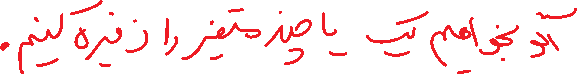 اگر بخواهیم یک یا چند متغیر را ذخیره کنیم.